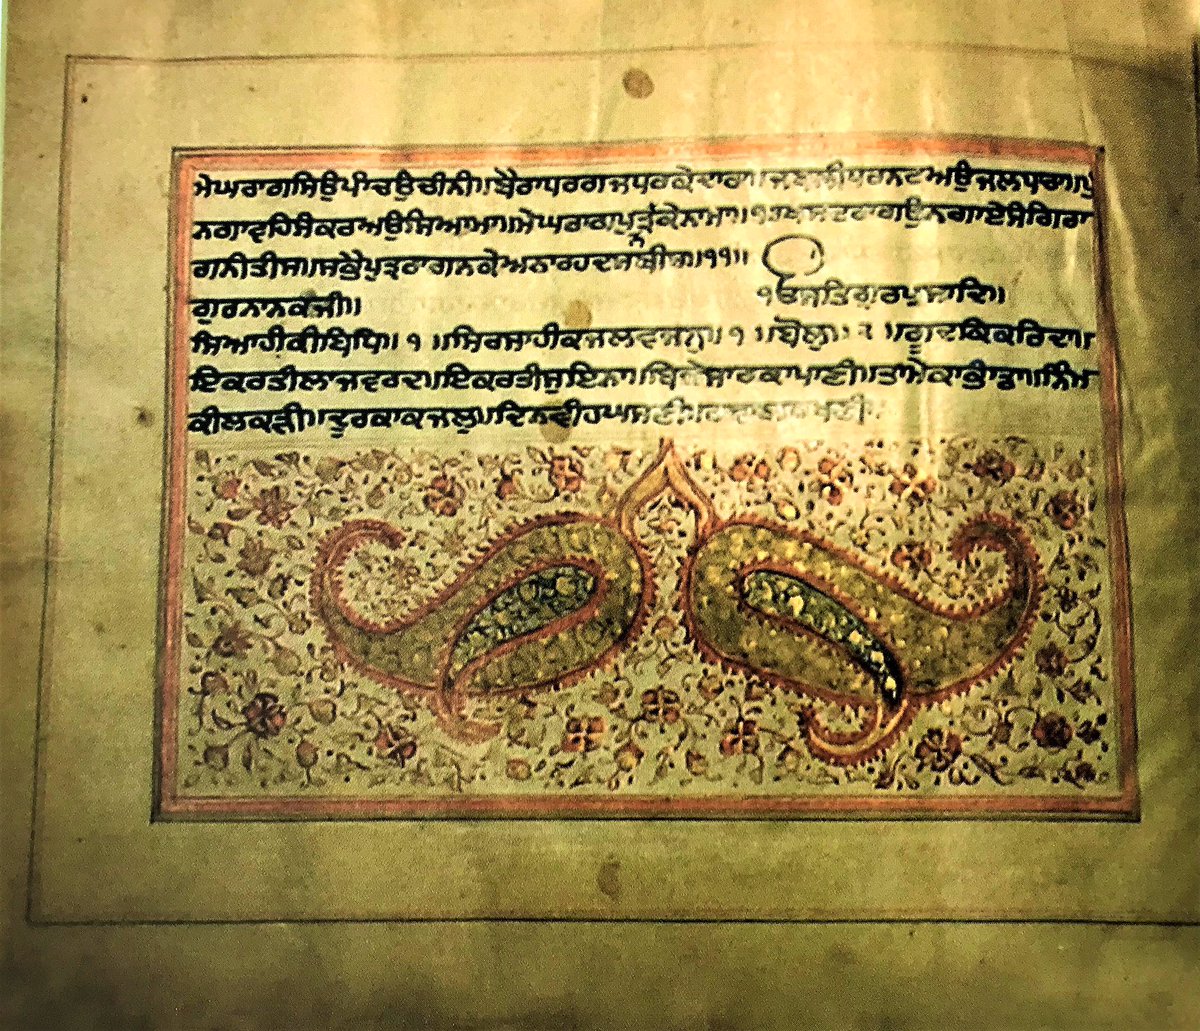 ਮੇਘਰਾਗਸਿਉਪਾਂਚਉਚੀਨੀ॥ਬੈਰਾਧਰਗਜਧਰਕੇਦਾਰਾ॥ਜਬਲੀਧਰਨਟਅਉਜਲਧਾਰਾ॥ਪੁ
ਨਗਾਵਹਿਸੰਕਰਅਉਸਿਆਮਾ॥ਮੇਘਰਾਗਪੁਤ੍ਰੰਕੇਨਾਮਾ॥੧॥ਖਸਟਰਾਗਉਨਗਾਏਸੰਗਿਰਾ
ਗਨੀਤੀਸ॥ਸਭੈਪੁਤ੍ਰਰਾਗਨਕੇਅਠਾਰਹਦਸਬੀਸ॥੧॥੧॥
ਗੁਰਨਾਨਕਜੀ॥ ੴਸਤਿਗੁਰਪ੍ਰਸਾਦਿ॥
ਸਿਆਹੀਕੀਬਿਧਿ॥ ੧ ॥ਸਿਰਸਾਹੀਕਜਲਵਜਨੁ॥ ੧ ॥ਬੋਲੁ॥ ੨ ॥ਗੂਦਕਿਕਰਿਦਾ॥
ਇਕਰਤੀਲਾਜਵਰਦ॥ਇਕਰਤੀਸੁਇਨਾ॥ਬਿਜੇਸਾਰਕਾਪਾਣੀ॥ਤਾਮੇਕਾਭਾਂਡਾ॥ਨਿੰਮ
ਕੀਲਕੜੀ॥ਤੂਰਕਾਕਜਲੁ॥ਦਿਨਵੀਹਘਸਣੀ॥